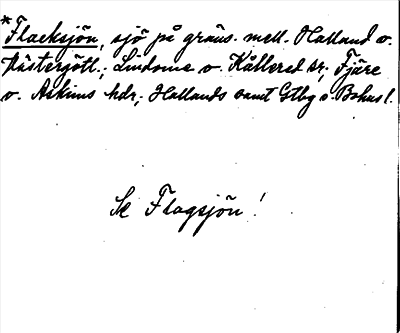 *Flacksjön, sjö på gräns. mell. Halland o.
Västergötl.; Lindome o. Kållered sr; Fjäre
o. Askims hdr; Hallands samt Gtbg o. Bohusl.
Se Flagsjön!